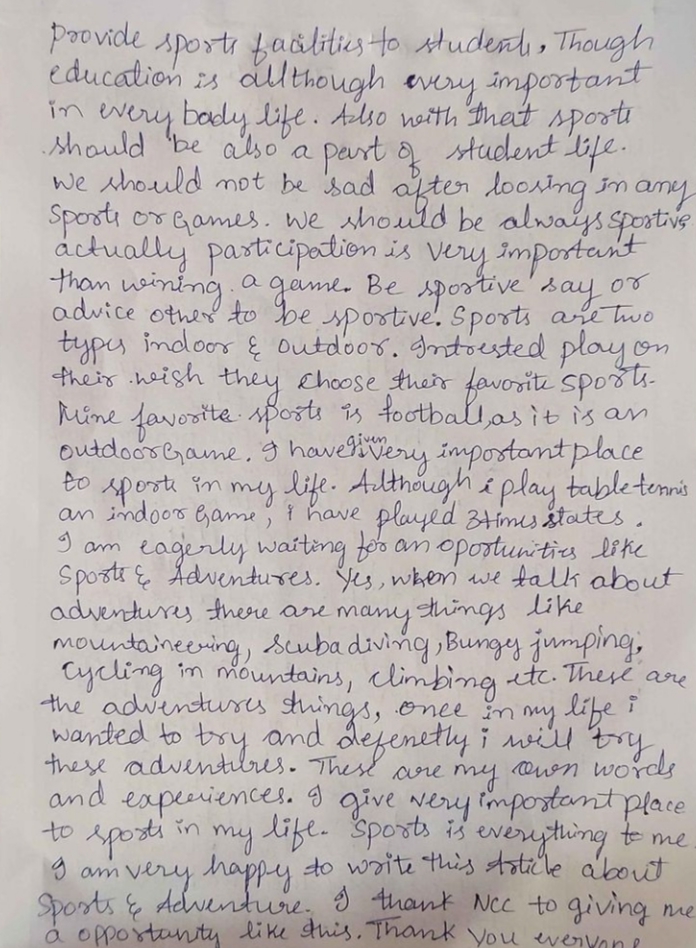 Provide sports facilities to students, Though
education is allthough every important
in every body life. Also with that sports
should be also a part of student life.
We should not be sad after loosing in any
Sports or Games. We should be always sportive
actually participation is very important
than wining a game. Be sportive say or
advice other to be sportive. Sports are Two
types indoor & outdoor. Introsted play on
their wish they choose their favorite sports.
Mine favorite sports is football, as it is an
outdoor Game. I have given very important place
to sports in my life. Although i play table tennis
an indoor Game, i have played 3times states.
I am eagerly waiting for an oportunities like
Sports & Adventures. Yes, when we talk about
adventures there are many things like
mountaineering, Scuba diving, Bungy jumping,
Cycling in mountains, climbing etc. These are
the adventures things, once in my life i
wanted to try and defenetly i will try
these adventures. These are my own words
and experiences. I give very important place
to sports in my life. Sports is everything to me.
I am very happy to write this Article about
Sports & Adventure. I thank NCC to giving me
a opportunity like this. Thank You everyone